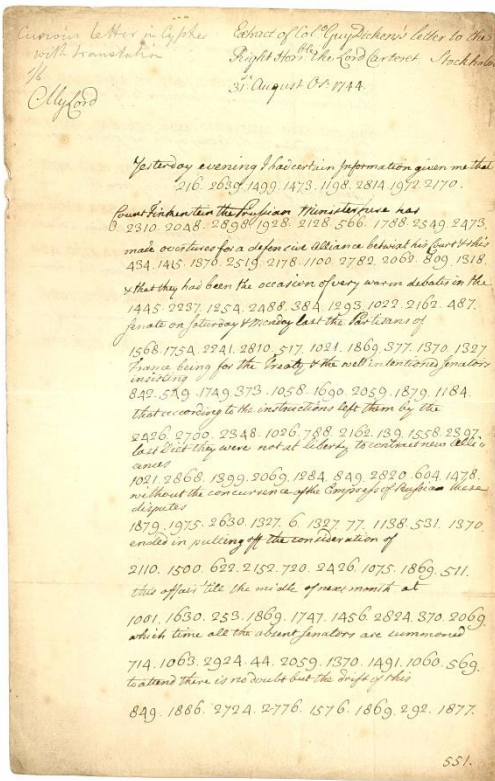 Curious letter in Cypher
with translation
My Lord
Extract of Col.º Guy Dickens's letter to the
Right Hon.ble the Lord Carteret Stockholm
31st August O.S. 1744.
Yesterday evening I had certain Information given me that
216. 2639. 1499. 1473. 1198. 2814. 1972. 2170.
Count Finkenstein the Prussian Minister here has
2310. 2048. 2898. 1928. 2128. 566. 1768. 2549. 2473.
made overtures for a defensive Alliance betwixt his Court & this
434. 1415. 1370. 2519. 2178. 1100. 2782. 2062. 809. 1318.
& that they had been the occasion of very warm debates in the
1445. 2237. 1254. 2488. 384. 1293. 1022. 2162. 487.
Senate on Saturday & Monday last the Partisans of
1568. 1754. 2241. 2810. 517. 1021. 1869. 377. 1370. 1327
France being for the Treaty & the well intentioned Senators
insisting
842. 549. 1749. 373. 1058. 1690. 2059. 1879. 1184.
that according to the instructions left them by the
2426. 2700. 2348. 1026. 788. 2162. 139. 1558. 2397.
last Diet they were not at liberty to contract new alli-
ances
1021. 2868. 1399. 2069. 1284. 849. 2820. 604. 1478.
without the concurrence of the Empress of Russia these
disputes
1879. 1975. 2630. 1327. 6. 1327. 77. 1138. 531. 1370.
ended in putting off the consideration of
2110. 1500. 622. 2152. 720. 2426. 1075. 1869. 511.
this affair 'till the middle of next month at
1001. 1630. 253. 1869. 1747. 1456. 2824. 370. 2069.
which time all the absent Senators are summoned
714. 1063. 2924. 44. 2059. 1370. 1491. 1060. 569.
to attend there is no doubt but the drift of this
849. 1886. 2724. 2776. 1576. 1869. 292. 1877.
551.